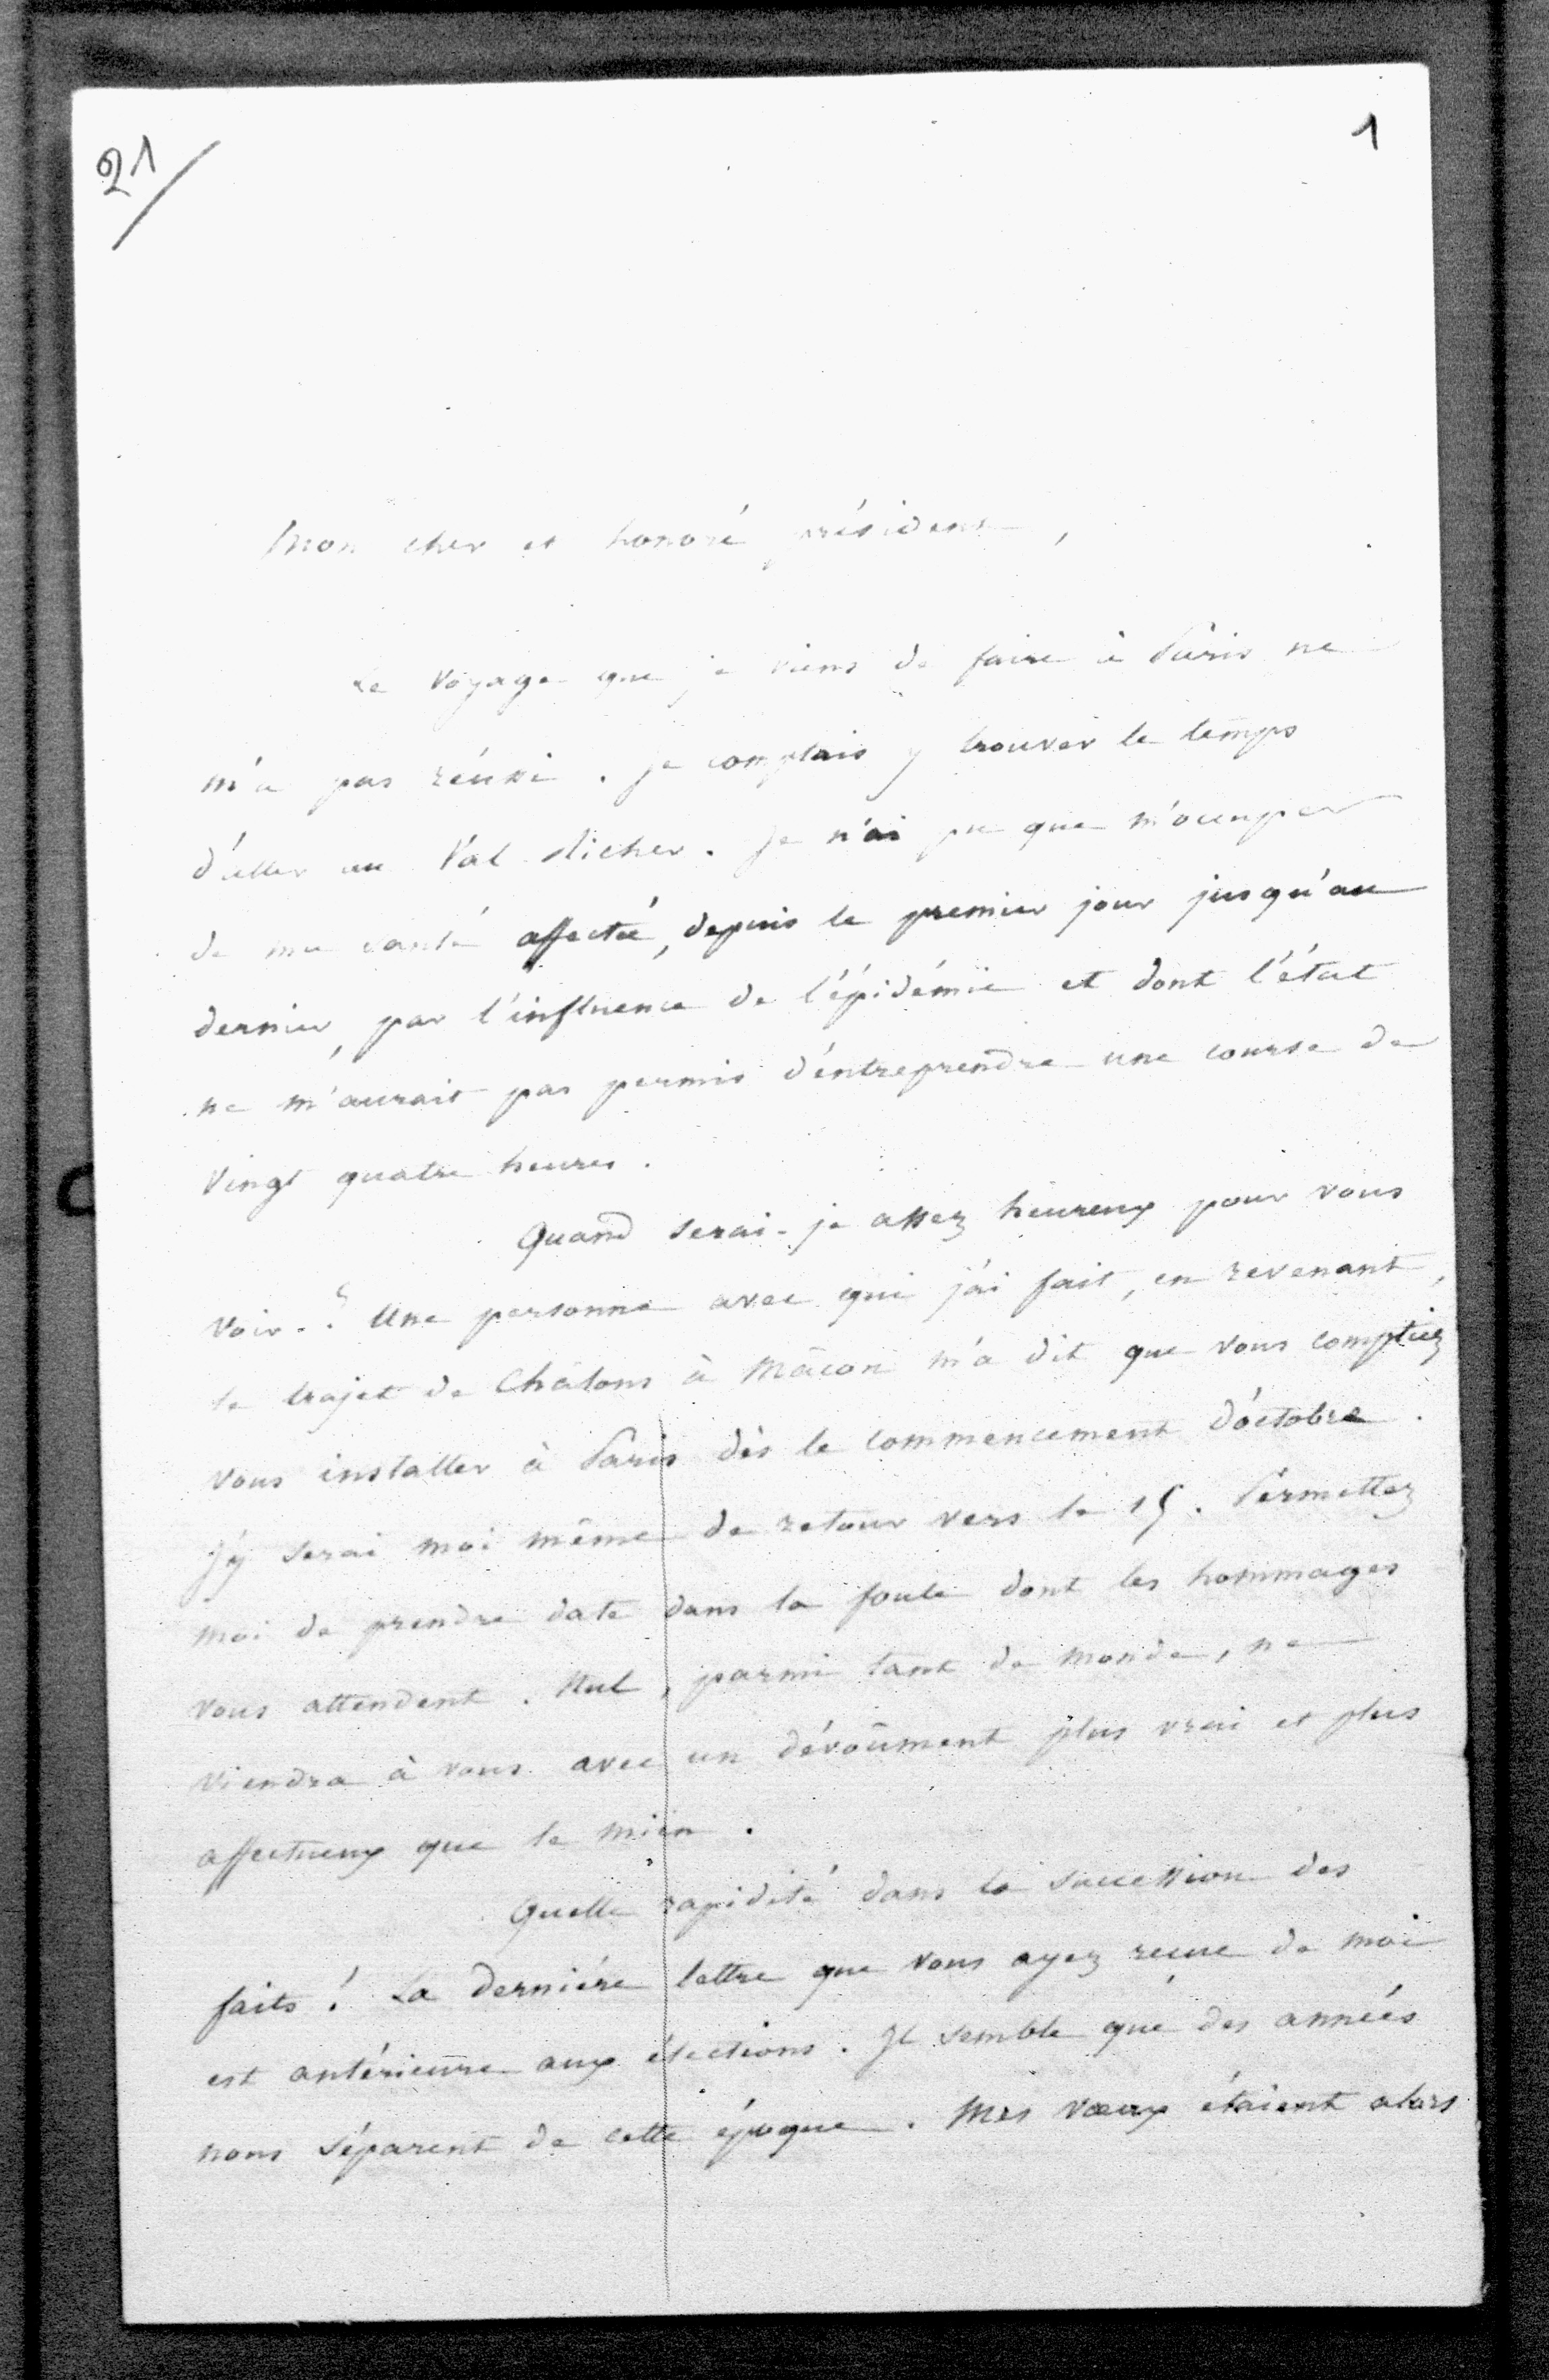 21
1
Mon cher et honoré président,
Le voyage que je viens de faire à Paris ne
m'a pas réussi. Je comptais y trouver le temps
d'aller au Val Richer. Je n'ai pu que m'occuper
de ma santé affectée, depuis le premier jour jusqu'au
dernier, par l'influence de l'épidémie et dont l'état
ne m'aurait pas permis d'entreprendre une course de
vingt quatre heures.
Quand serai-je assez heureux pour vous
voir ? Une personne avec qui j'ai fait, en revenant,
le trajet de Châlons à Mâcon m'a dit que vous comptiez
vous installer à Paris dès le commencement d'octobre.
J'y serai moi même de retour vers le 15. Permettez
moi de prendre date dans la foule dont les hommages
vous attendent. Nul, parmi tant de monde, ne
viendra à vous avec un dévoûment plus vrai et plus
affectueux que le mien.
Quelle rapidité dans la succession des
faits ! La dernière lettre que vous ayez reçue de moi
est antérieure aux élections. Il semble que des années
nous séparent de cette époque. Mes vœux étaient alors